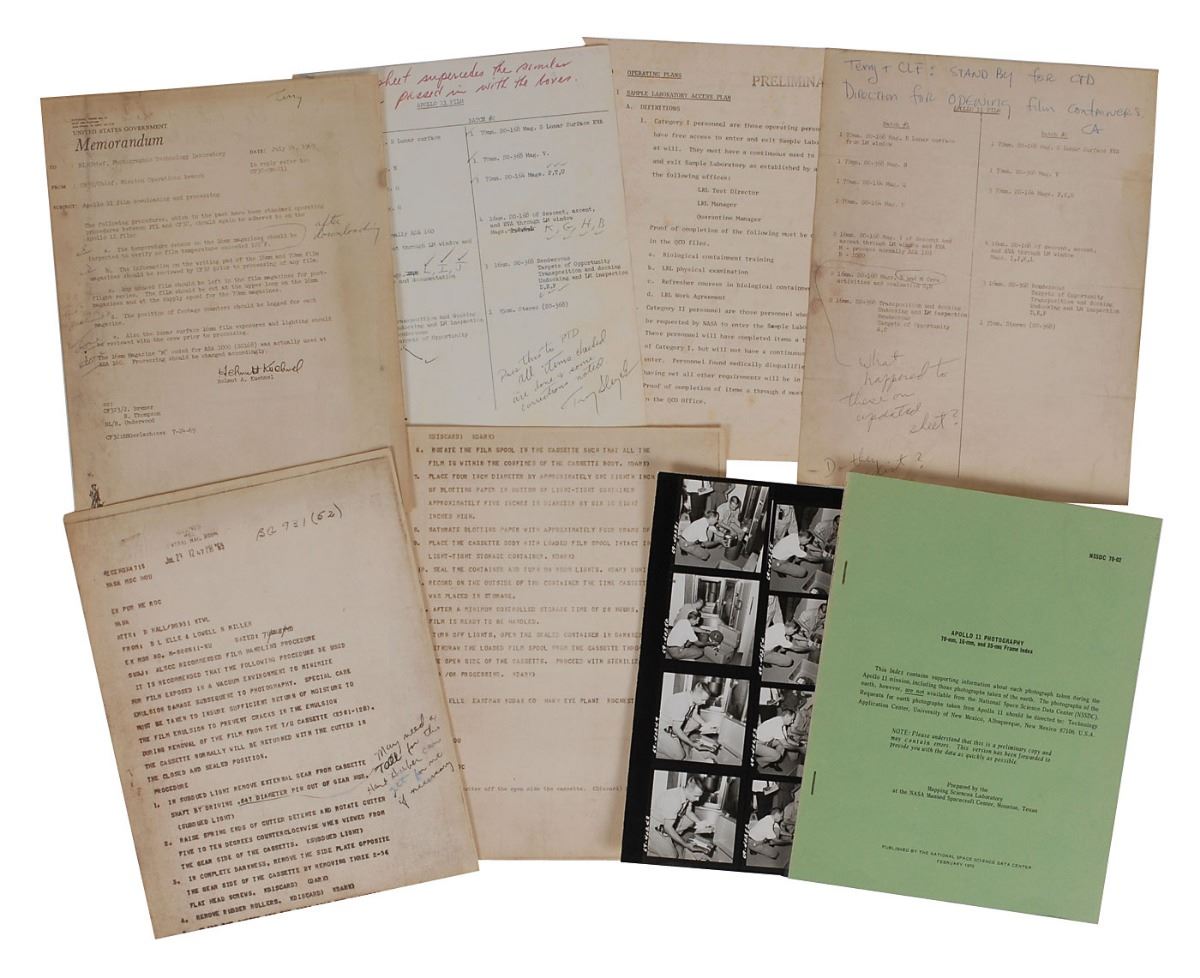 Terry
UNITED STATES GOVERNMENT
Memorandum
TO : BL/Chief, Photographic Technology Laboratory
DATE: July 24, 1969
In reply refer to:
FROM : CF32/Chief, Mission Operations Branch
SUBJECT: Apollo 11 film downloading and processing
The following procedures, which in the past have been standard operating
procedures between PTL and CF32, should again be adhered to on the
Apollo 11 film:
after
downloading
a. The temperature detents on the 16mm magazines should be
inspected to verify no film temperature exceeded
b. The information on the writing pad of the 16mm and 70mm film
magazines should be reviewed by CF32 prior to processing of any film.
c. Any unused film should be left in the film magazines for post-
flight review. The film should be cut at the upper loop on the 16mm
magazines and at the supply spool for the 70mm magazines.
d. The position of footage counters should be logged for each
magazine.
e. Also the lunar surface 16mm film exposures and lighting should
be reviewed with the crew prior to processing.
The 16mm Magazine "M" coded for ASA 1000 (SO168) was actually used at
ASA 160. Processing should be changed accordingly.
Helmut A. Kuehnel
cc:
CF323/J. Bremer
R. Thompson
BL/R. Underwood
7-24-69
sheet supercedes the similar
passed in with the boxes.
APOLLO 11 FILM
BATCH #2
S Lunar surface
1 70mm. SO-168 Mag. S Lunar Surface EVA
1 70mm. SO-368 Mag. V.
3 70mm. SO-164 Mags. P,T,U
4 16mm. SO-168 of descent, ascent,
and EVA through LM window
Mags. K, G, H, B
3 16mm. SO-368 Rendezvous
Targets of Opportunity
Transposition and docking
Undocking and LM inspection
D,E,F
1 35mm. Stereo (SO-368)
through LM window
normally ASA 160
L, I, J
Transposition and docking
Undocking and LM inspection
Rendezvous
Targets of Opportunity
Pass this to PTD
all items checked
are done & some
corrections noted
Terry Slezak
OPERATING PLANS
PRELIMINA
SAMPLE LABORATORY ACCESS PLAN
A. DEFINITIONS
1. Category I personnel are those operating person
have free access to enter and exit Sample Labora
at will. They must have a continuous need to
and exit Sample Laboratory as established by a
the following offices:
LRL Test Director
LRL Manager
Quarantine Manager
Proof of completion of the following must be o
in the QCO files.
a. Biological containment training
b. LRL physical examination
c. Refresher courses in biological containmen
d. LRL Work Agreement
Category II personnel are those personnel who
be requested by NASA to enter the Sample Labo
These personnel will have completed items a t
of Category I, but will not have a continuous
enter. Personnel found medically disqualifie
having met all other requirements will be in
Proof of completion of items a through d must
n the QCO Office.
Terry & CLF: STAND BY FOR CTD
DIRECTION FOR OPENING film CONTAINERS.
CA
APOLLO 11 FILM
Batch #1
Batch #2
1 70mm. SO-168 Mag. R Lunar surface
from LM window
1 70mm. SO-168 Mag. S Lunar Surface EVA
1 70mm. SO-368 Mag. N
1 70mm. SO-368 Mag. V
1 70mm. SO-164 Mag. Q
3 70mm. SO-164 Mags. P,T,U
1 70mm. SO-168 Mag. O
ascent through LM window and EVA
M - process normally ASA 160
4 16mm. SO-168 of descent, ascent,
and EVA through LM window
activities and evaluation
3 16mm. SO-368 Transposition and docking
Undocking and LM inspection
Rendezvous
Targets of Opportunity
3 16mm. SO-368 Rendezvous
Targets of Opportunity
Transposition and docking
Undocking and LM inspection
D,E,F
1 35mm. Stereo (SO-368)
what
happened to
these on
updated
sheet?
BG 931 (62)
CENTRAL MAIL ROOM
NASA MSC HOU
EK POR ME ROC
NASA
ATTN: D HALL/BO931 KTWL
FROM: B L ELLE & LOWELL N MILLER
SUBJ: ALSCC RECOMMENDED FILM HANDLING PROCEDURE
IT IS RECOMMENDED THAT THE FOLLOWING PROCEDURE BE USED
FOR FILM EXPOSED IN A VACUUM ENVIRONMENT TO MINIMIZE
EMULSION DAMAGE SUBSEQUENT TO PHOTOGRAPHY. SPECIAL CARE
MUST BE TAKEN TO INSURE SUFFICIENT RETURN OF MOISTURE TO
THE FILM EMULSION TO PREVENT CRACKS IN THE EMULSION
DURING REMOVAL OF THE FILM FROM THE T/U CASSETTE (K5N1-120).
THE CASSETTE NORMALLY WILL BE RETURNED WITH THE CUTTER IN
THE CLOSED AND SEALED POSITION.
PROCEDURE
1. IN SUBDUED LIGHT REMOVE EXTERNAL GEAR FROM CASSETTE
SHAFT BY DRIVING .047 DIAMETER PIN OUT OF GEAR HUB.
(SUBDUED LIGHT)
2. RAISE SPRING ENDS OF CUTTER DETENTS AND ROTATE CUTTER
FIVE TO TEN DEGREES COUNTERCLOCKWISE WHEN VIEWED FROM
THE GEAR SIDE OF THE CASSETTE. (SUBDUED LIGHT)
3. IN COMPLETE DARKNESS, REMOVE THE SIDE PLATE OPPOSITE
THE GEAR SIDE OF THE CASSETTE BY REMOVING THREE 2-56
FLAT HEAD SCREWS. (DISCARD) (DARK)
4. REMOVE RUBBER ROLLERS. (DISCARD) (DARK)
May need a
Tool for this
can
get for me
if necessary
(DISCARD) (DARK)
6. ROTATE THE FILM SPOOL IN THE CASSETTE SUCH THAT ALL THE
FILM IS WITHIN THE CONFINES OF THE CASSETTE BODY. (DARK)
7. PLACE FOUR INCH DIAMETER BY APPROXIMATELY ONE EIGHTH INCH
OF BLOTTING PAPER IN BOTTOM OF LIGHT-TIGHT CONTAINER
APPROXIMATELY FIVE INCHES IN DIAMETER BY SIX TO EIGHT
INCHES HIGH.
8. SATURATE BLOTTING PAPER WITH APPROXIMATELY FOUR GRAMS OF
9. PLACE THE CASSETTE BODY WITH LOADED FILM SPOOL INTACT IN
LIGHT-TIGHT STORAGE CONTAINER. (DARK)
10. SEAL THE CONTAINER AND TURN ON ROOM LIGHTS.
RECORD ON THE OUTSIDE OF THE CONTAINER THE TIME CASSETTE
WAS PLACED IN STORAGE.
AFTER A MINIMUM CONTROLLED STORAGE TIME OF 20 HOURS,
FILM IS READY TO BE HANDLED.
TURN OFF LIGHTS, OPEN THE SEALED CONTAINER IN DARKNESS
WITHDRAW THE LOADED FILM SPOOL FROM THE CASSETTE
THE OPEN SIDE OF THE CASSETTE. PROCEED WITH STERILIZ
/OR PROCESSING. (DARK)
ELLE EASTMAN KODAK CO HAWK EYE PLANT ROCHEST
NSSDC 70-02
APOLLO 11 PHOTOGRAPHY
70-mm, 16-mm, and 35-mm Frame Index
This Index contains supporting information about each photograph taken during the
Apollo 11 mission, including those photographs taken of the earth. The photographs of the
earth, however, are not available from the National Space Science Data Center (NSSDC).
Requests for earth photographs taken from Apollo 11 should be directed to: Technology
Application Center, University of New Mexico, Albuquerque, New Mexico 87106 U.S.A.
NOTE: Please understand that this is a preliminary copy and
may contain errors. This version has been forwarded to
provide you with the data as quickly as possible.
Prepared by the
Mapping Sciences Laboratory
at the NASA Manned Spacecraft Center, Houston, Texas
PUBLISHED BY THE NATIONAL SPACE SCIENCE DATA CENTER
FEBRUARY 1970